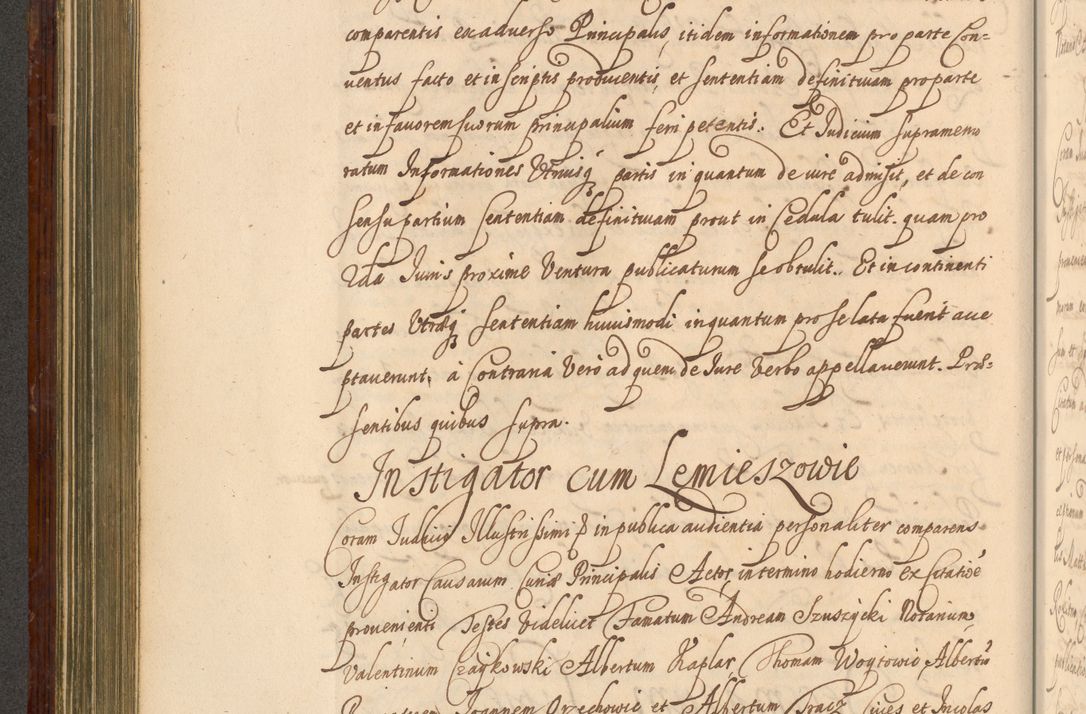 comparentis ex adverso Principalis, itidem informationem pro parte Con=
ventus facto et in scriptis producentis, et sententiam definitivam pro parte
et in favorem suorum principalium ferri petentis. Et Judicium supramemo
ratum Informationes Utriusq partis in quantum de iure admisit, et de con
sensu partium sententiam definitivam prout in Cedula tulit. quam pro
2da Juris proxime Ventura publicaturum se obtulit. Et in continenti
partes Utraq sententiam huiusmodi inquantum pro se lata fuerit acce
ptaverunt, à Contraria Verò ad quem de Jure Verbo appellaverunt. Præ=
sentibus quibus supra.
Instigator cum Lemieszowie
Coram Judicio Illustrissimi & in publica audientia personaliter comparens
Instigator Causarum Curiæ Principalis Actor, in termino hodierno ex Citatioe
provenienti Testes Videlicet Famatum Andream Szuszycki Notarium,
Valentinum Czaykowski Albertum Kaplar, Thomam Woytowic, Albertu
Joannem Orzechowic et Albertum Tracz Cives et Incolas